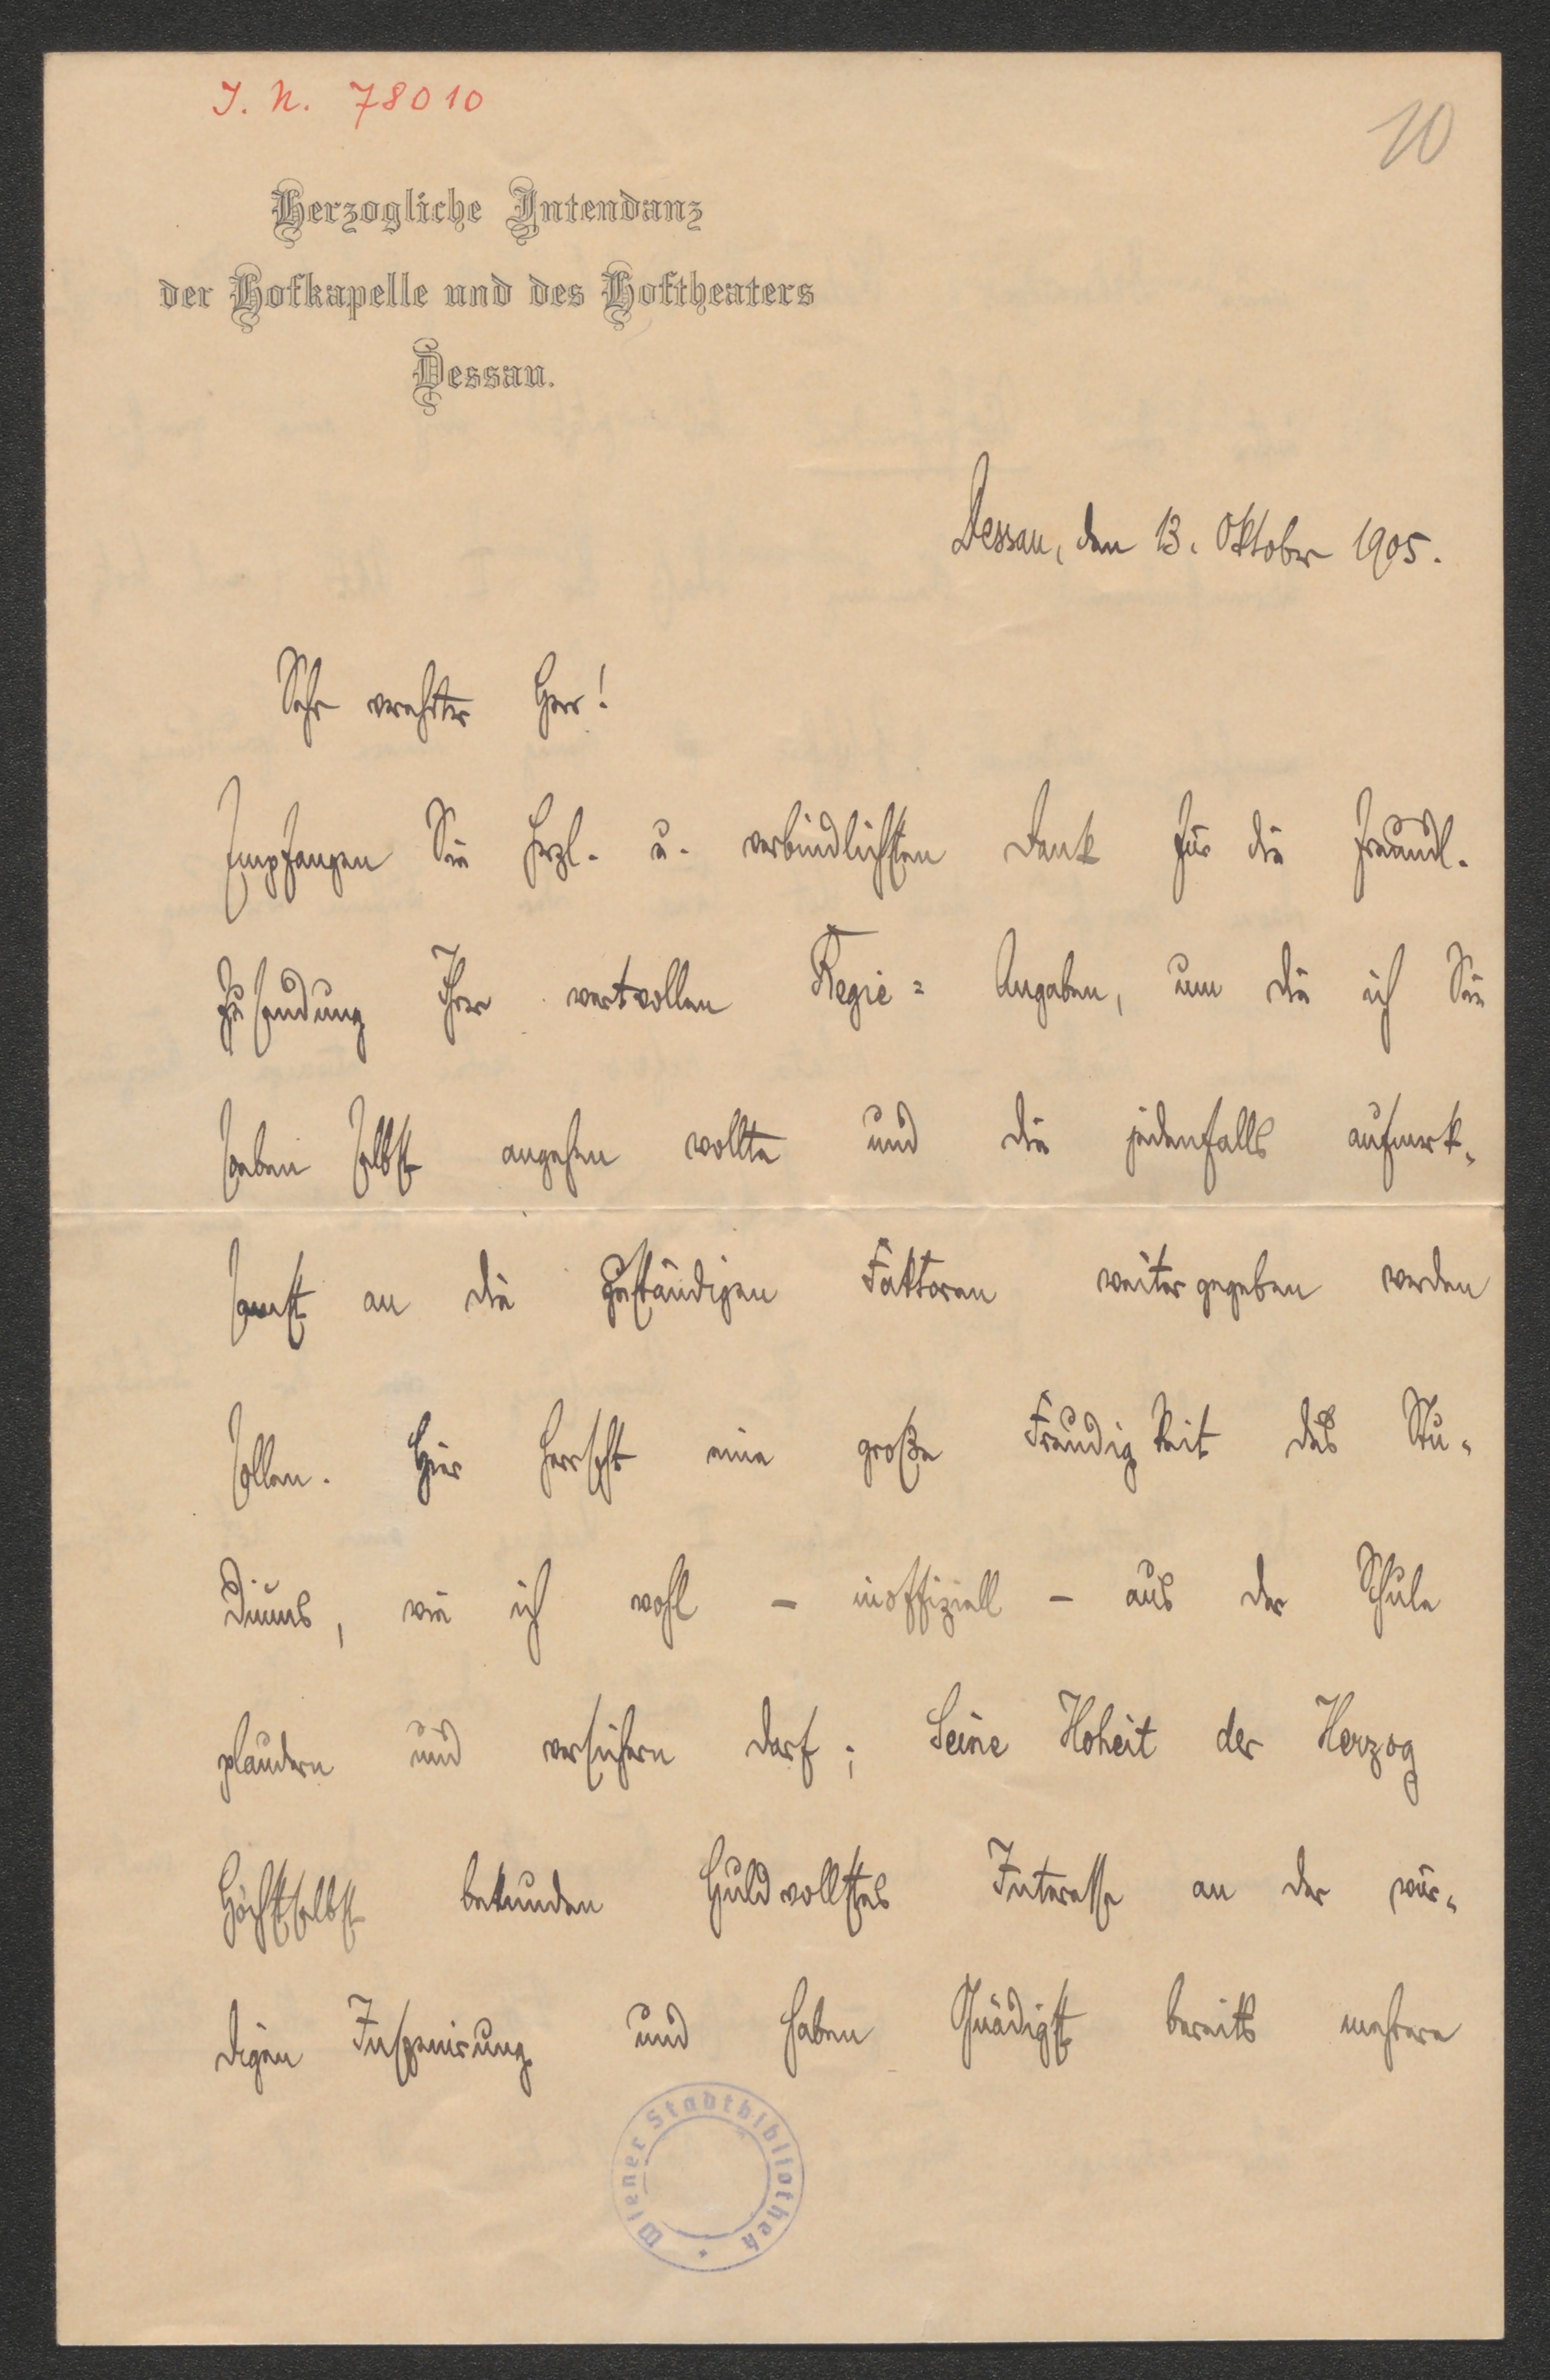 J. N. 78010
10
Herzogliche Intendanz
der Hofkapelle und des Hoftheaters
Dessau.
Dessau, den 13. Oktober 1905.
Sehr verehrter Herr!
Empfangen Sie herzl. u. verbindlichsten Dank für die freundl.
Zusendung Ihrer wertvollen Regie=Angaben, um die ich Sie
soeben selbst angehen wollte und die jedenfalls aufmerk-
samst an die zuständigen Faktoren weitergegeben werden
sollen. Hier herrscht eine große Freudigkeit des Stu-
diums, wie ich wohl – inoffiziell – aus der Schule
plaudern und versichern darf; Seine Hoheit der Herzog
Höchstselbst bekunden huldvollstes Interesse an der wür-
digen Inszenirung und haben Gnädigst bereits mehrere
Wiener Stadtbibliothek